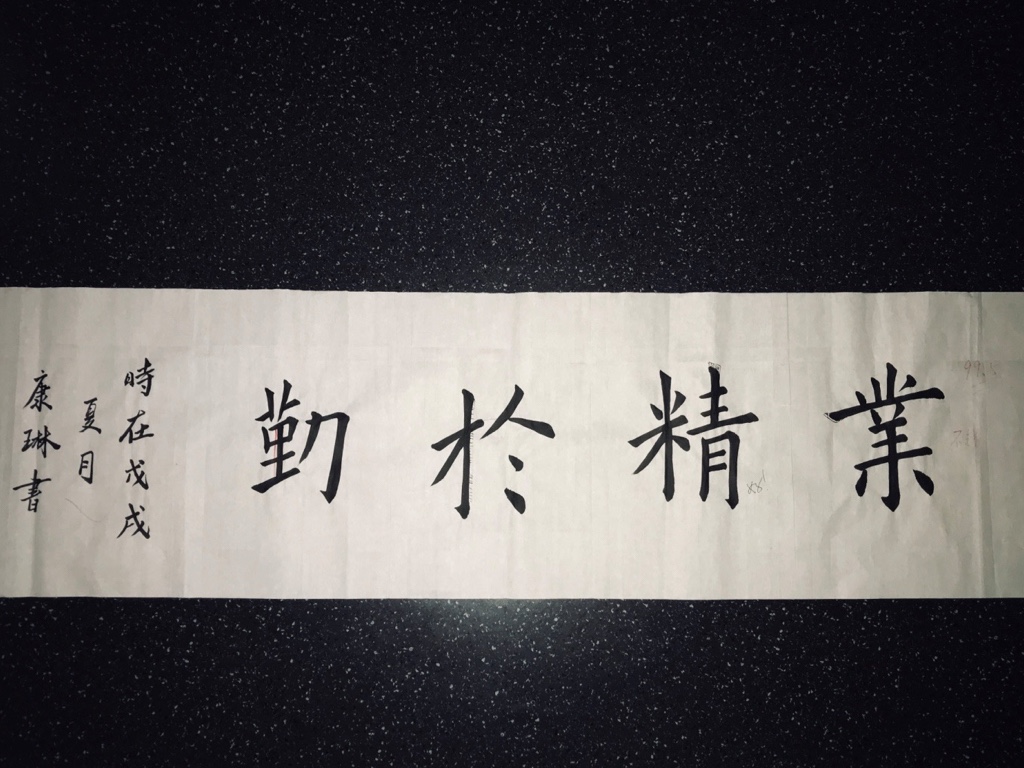 業精於勤
時在戊戌
夏月
康琳書